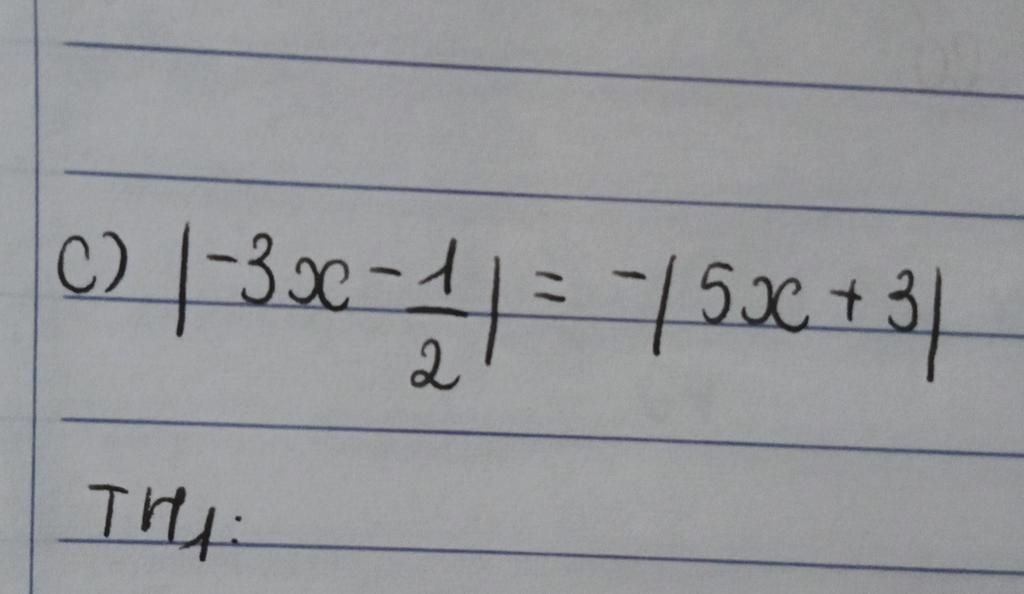 c) |-3x - 1/2| = -|5x + 3|
TH1: